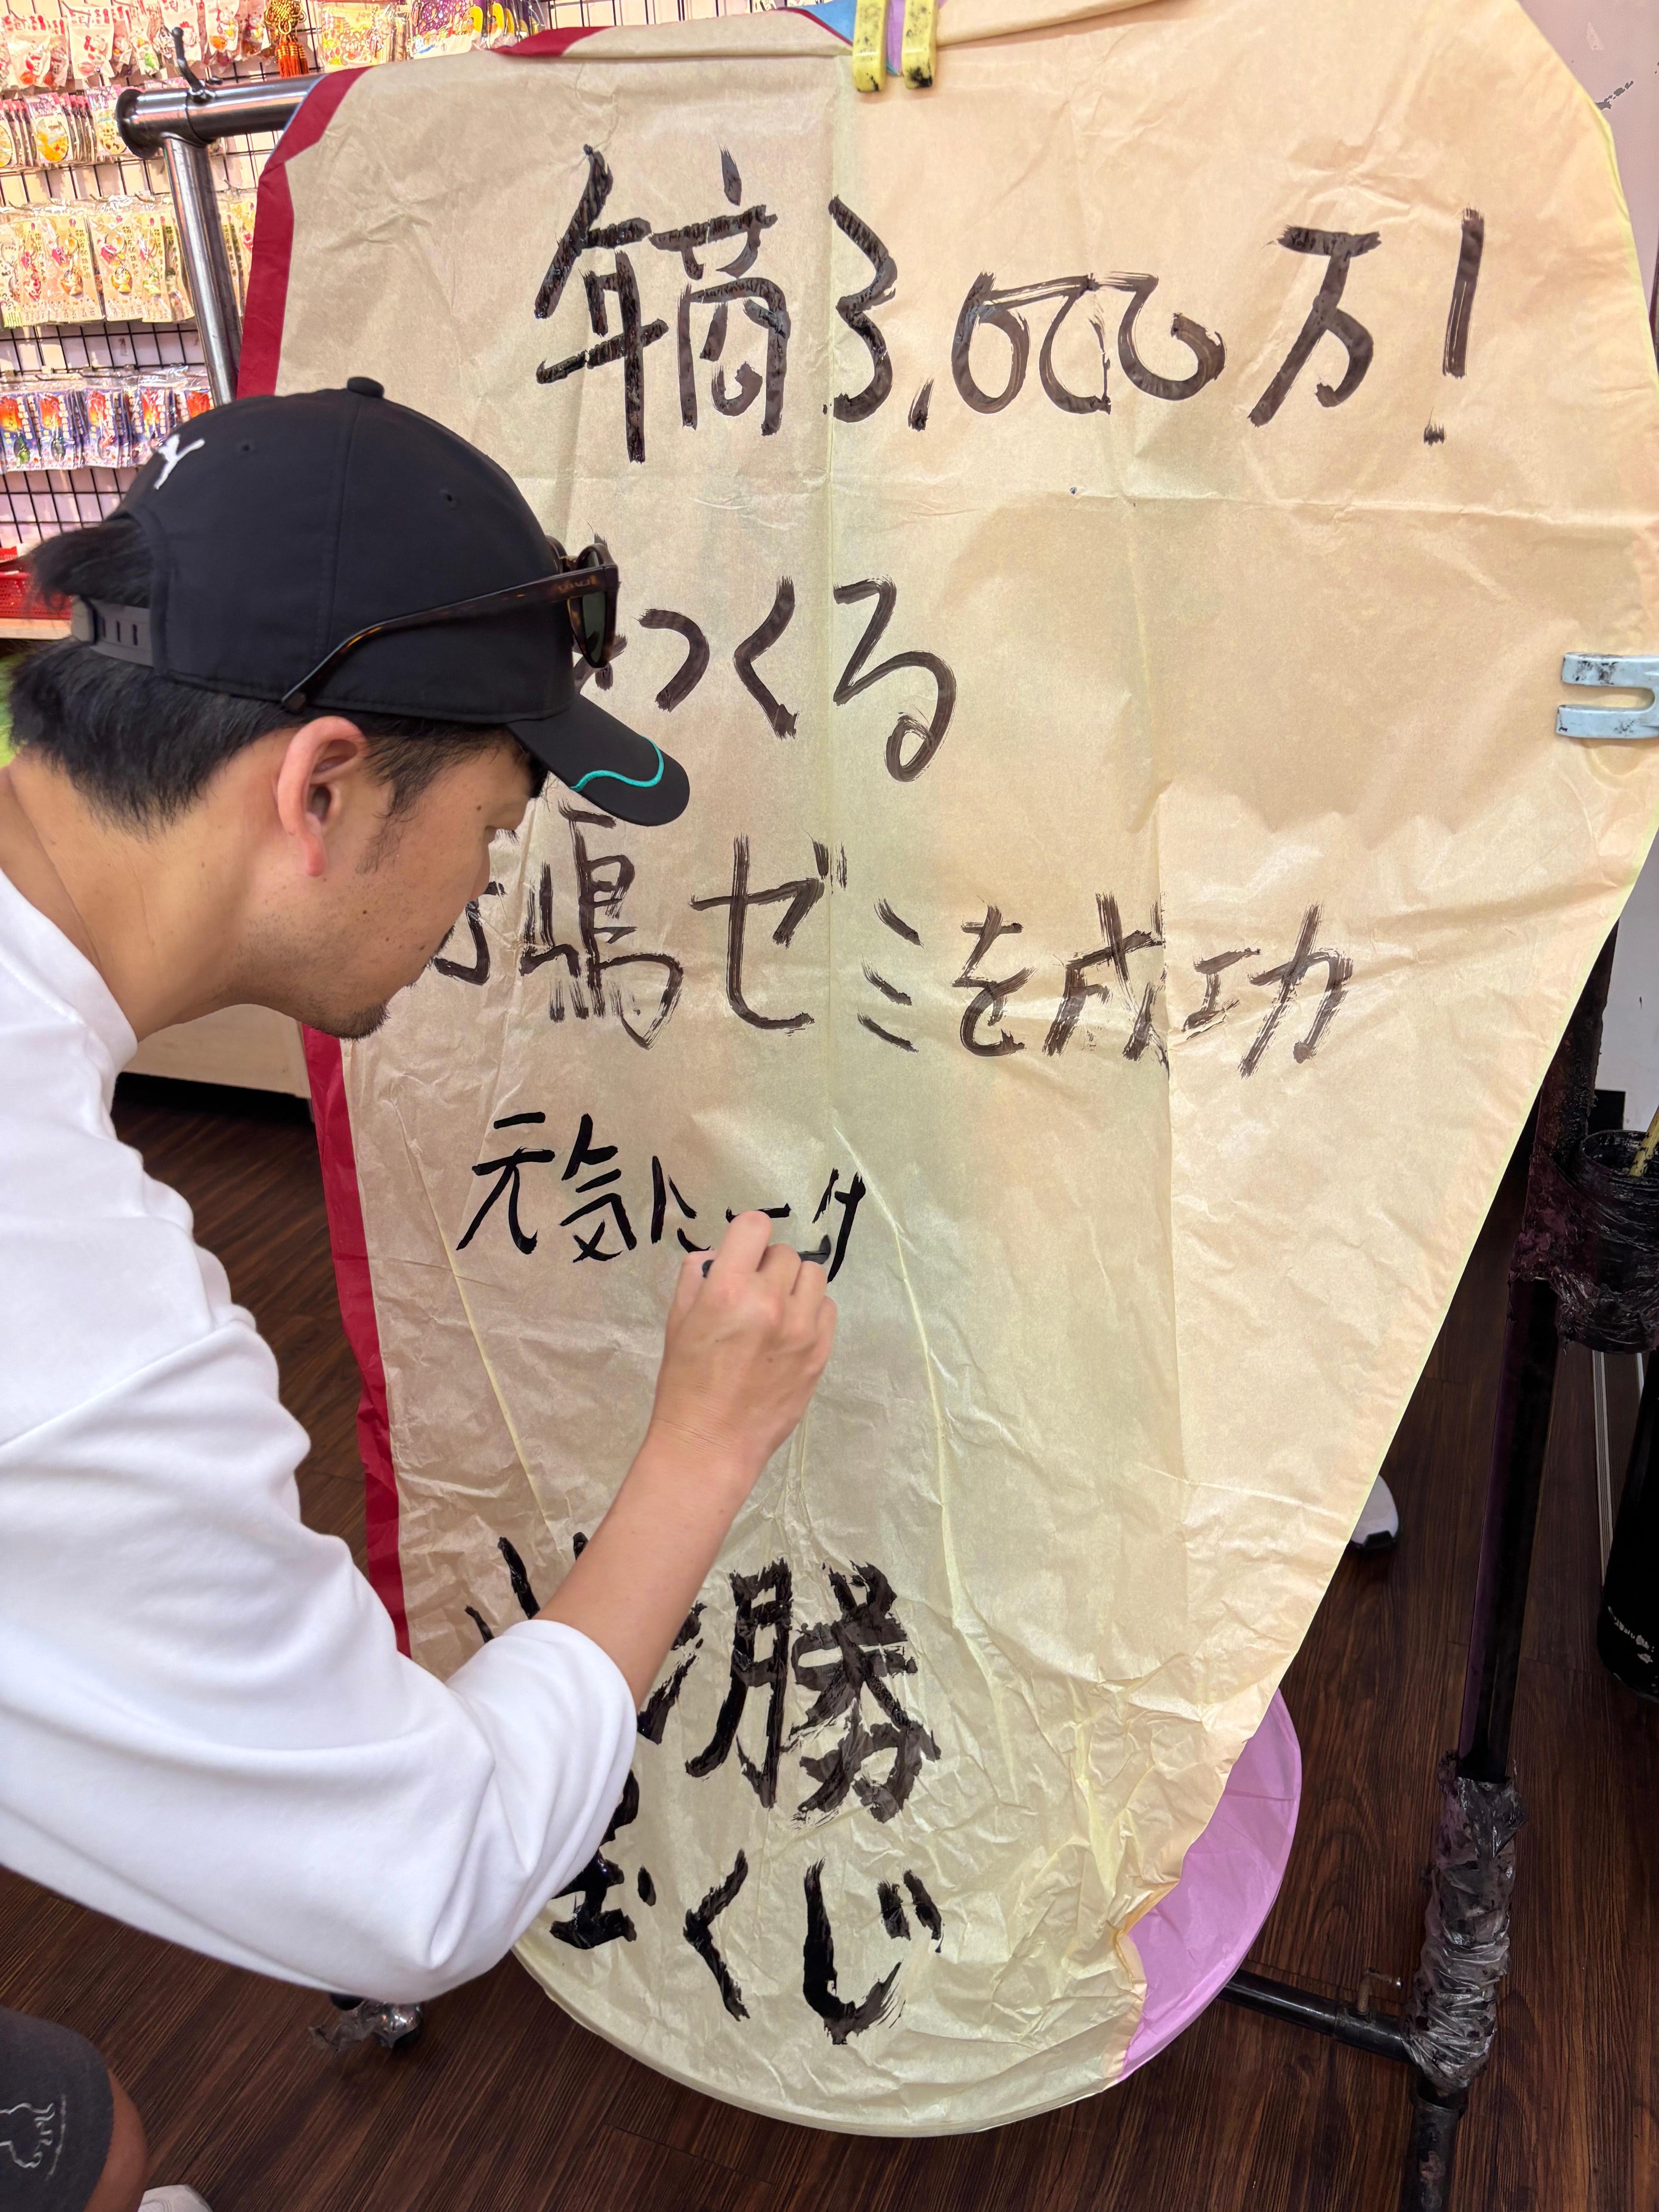 年商3,000万!
つくる
嶋ゼミを成功
元気に
必勝
宝くじ